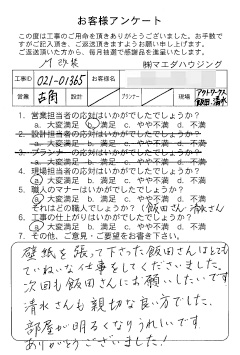 お客様アンケート
この度は工事のご用命を頂きありがとうございました。お手数で
すがご記入頂き、ご返送頂きますようお願い申し上げます。
ご返送頂いた方から、毎月抽選で感謝品を進呈いたします。
㈱マエダハウジング
工事ID 021-01365 お客様名
営業 古角 設計 プランナー 現場 アウトワークス 飯田・清水
1. 営業担当者の応対はいかがでしたでしょうか?
a. 大変満足 b. 満足 c. やや不満 d. 不満
2. 設計担当者の応対はいかがでしたでしょうか?
a. 大変満足 b. 満足 c. やや不満 d. 不満
3. プランナーの応対はいかがでしたでしょうか?
a. 大変満足 b. 満足 c. やや不満 d. 不満
4. 現場担当者の応対はいかがでしたでしょうか?
a. 大変満足 b. 満足 c. やや不満 d. 不満
5. 職人のマナーはいかがでしたでしょうか?
a. 大変満足 b. 満足 c. やや不満 d. 不満
それはどの職人でしょうか?(飯田さん 清水さん)
6. 工事の仕上がりはいかがでしたでしょうか?
a. 大変満足 b. 満足 c. やや不満 d. 不満
7. その他、ご意見・ご要望をお書き下さい。
壁紙を張って下さった飯田さんはとても
ていねいな仕事をしてくださいました。
次回も飯田さんにお願いしたいです
清水さんも親切な良い方でした。
部屋が明るくなりうれしいです
ありがとうございました!